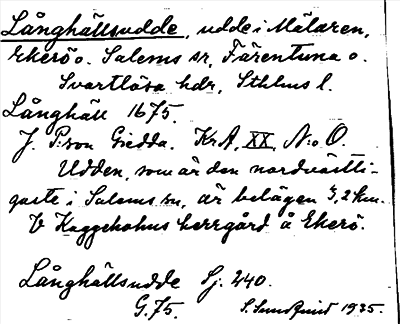 Långhällsudde, udde i Mälaren,
Ekerö o. Salems sr, Färentuna o.
Svartlösa hdr, Sthlms l.
Långhäll 1675.
J. P:son Gedda. KrA, XX, N:o O.
Udden, som är den nordvästli-
gaste i Salems sn, är belägen 3,2 km.
V Kaggeholms herrgård å Ekerö.
Långhällsudde Sj. 240.
G. 75. S. Sundquist 1935.